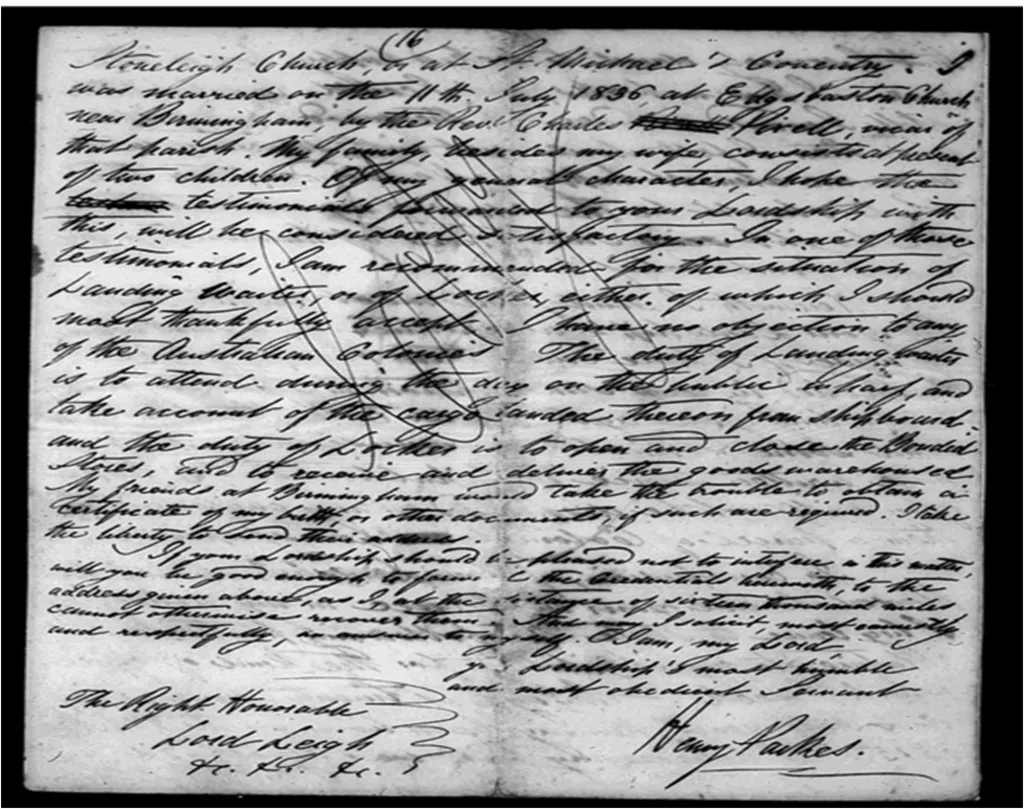 (16
Stoneleigh Church, or at St. Michael's Coventry. I
was married on the 11th July 1836 at Edgbaston Church
near Birmingham, by the Rev. Charles Pixell, vicar of
that parish. My family, besides my wife, consists at present
of two children. Of my general character, I hope the
testimonials to your Lordship with
this, will be considered satisfactory. In one of those
testimonials, I am recommended for the situation of
Landing Waiter, or of Locker, either of which I should
most thankfully accept. I have no objection to any
of the Australian Colonies. The duty of Landing Waiter
is to attend during the day on the public wharf, and
take account of the cargo landed thereon from shipboard.
and the duty of Locker is to open and close the Bonded
Stores, and to receive and deliver the goods warehoused.
My friends at Birmingham would take the trouble to obtain a
certificate of my birth or other documents, if such are required. I take
the liberty to send their address.
If your Lordship should be pleased not to interfere in this matter,
will you be good enough to forward the credentials herewith, to the
address given above, as I, at the distance of sixteen thousand miles
cannot otherwise recover them. And may I solicit, most earnestly
and respectfully, an answer to myself. I am, my Lord
your Lordship's most humble
and most obedient Servant
Henry Parkes.
The Right Honorable
Lord Leigh
&c. &c. &c.